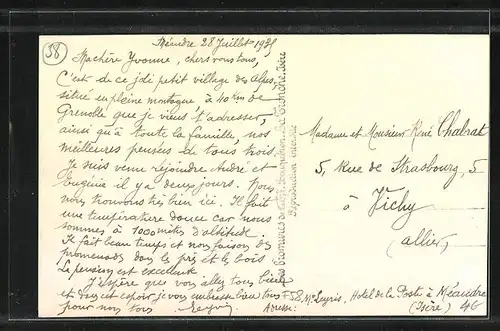 58
Méaudre 28 Juillet 19
Ma chère Yvonne, chers vous tous,
C'est de ce joli petit village des Alpes,
situé en pleine montagne à 40 Km de
Grenoble que je viens t'adresser,
ainsi qu'à toute la famille, nos
meilleures pensées de tous trois.
Je suis venu rejoindre André et
Eugénie il y a deux jours. Nous
nous trouvons très bien ici. Il fait
une température douce car nous
sommes à 1000 mètres d'altitude.
Il fait beau temps et nous faisons des
promenades dans les prés et les bois
La pension est excellente
J'espère que vous allez tous bien
et dans cet espoir je vous embrasse bien tous
pour nos tous
Adresse:
Madame et Monsieur René Chabrat
5, Rue de Strasbourg, 5
à Vichy
(Allier)
Mr Leyris, Hotel de la Poste à Méaudre
(Isère) 46